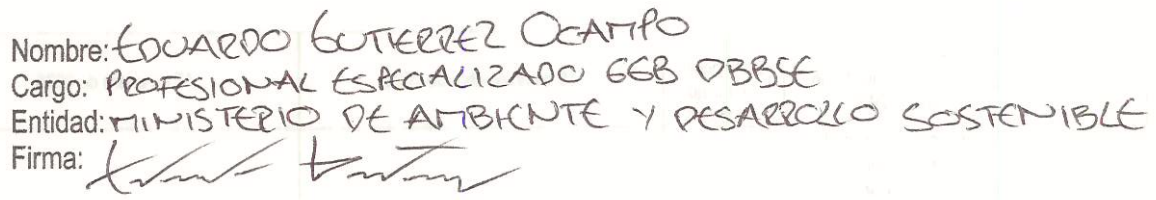 Nombre: EDUARDO GUTIERREZ OCAMPO
Cargo: PROFESIONAL ESPECIALIZADO GGB DBBSE
Entidad: MINISTERIO DE AMBIENTE Y DESARROLLO SOSTENIBLE
Firma: